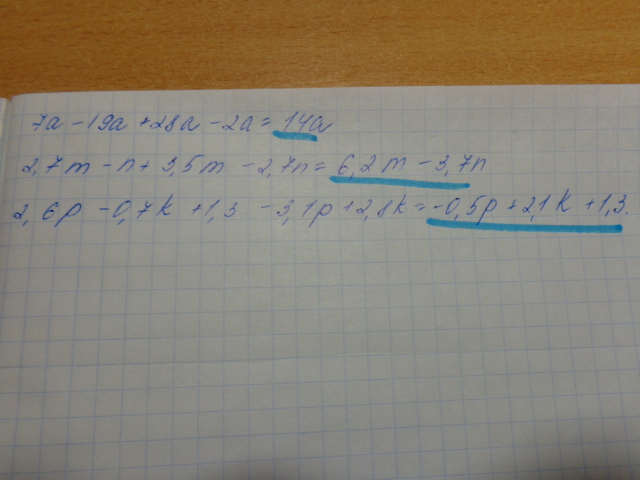 7a - 19a + 28a - 2a = 14a
2,7m - n + 3,5m - 2,7n = 6,2m - 3,7n
2,6p - 0,7k + 1,3 - 3,1p + 2,8k = -0,5p + 2,1k + 1,3.